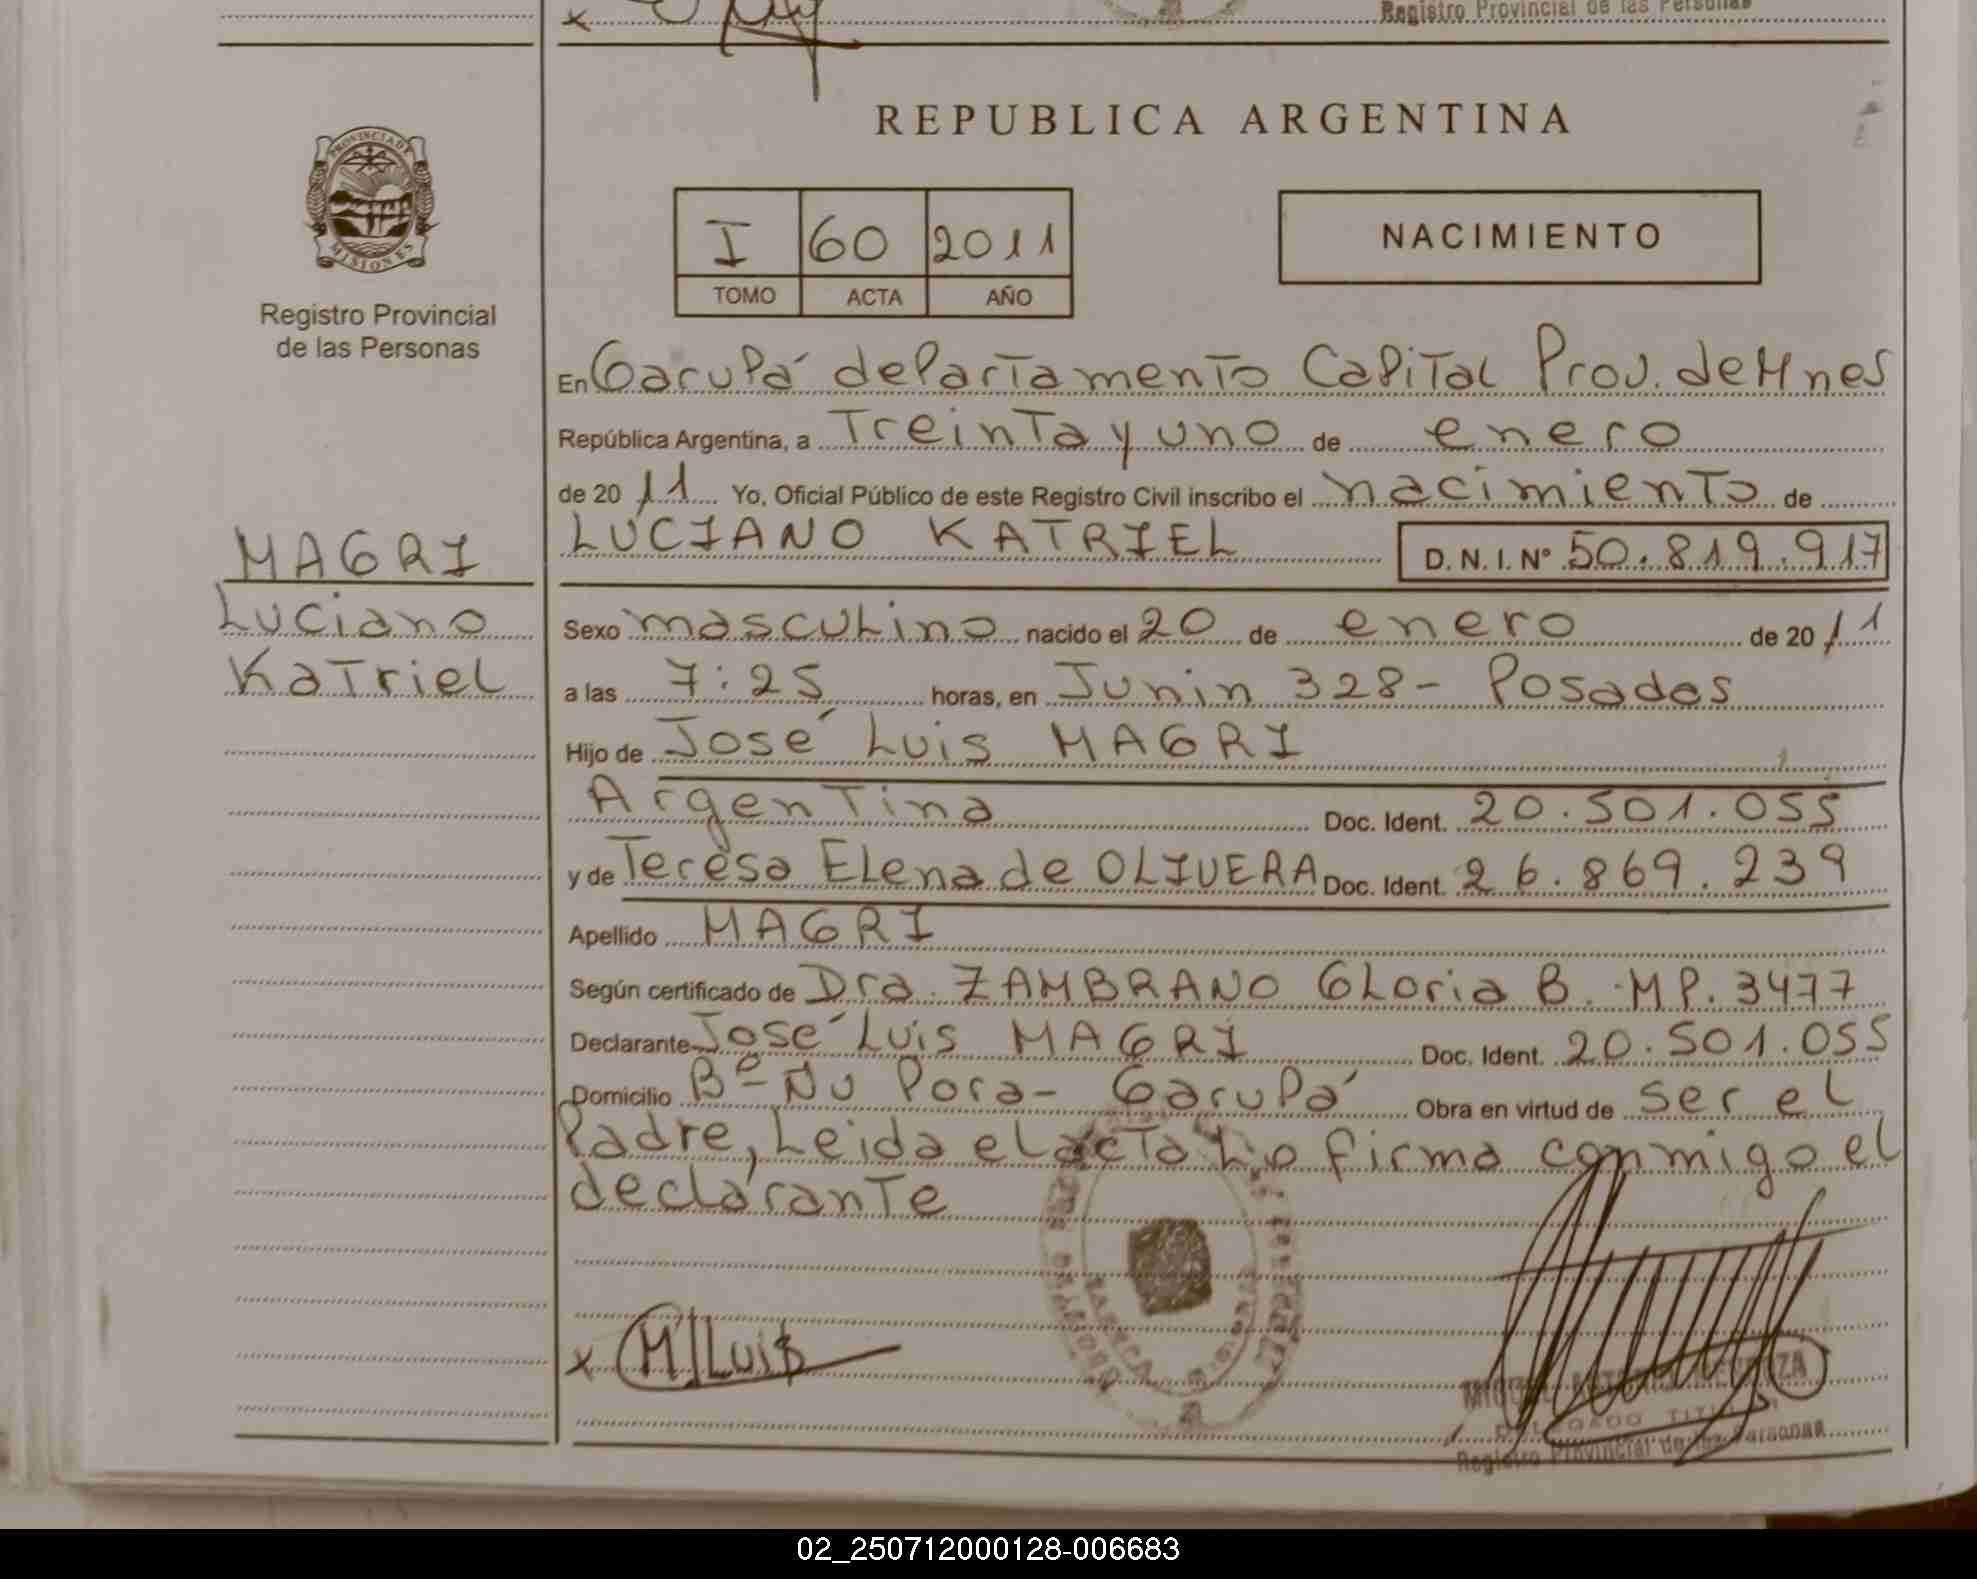 Registro Provincial de las Personas
x
REPUBLICA ARGENTINA
PROVINCIA DE
MISIONES
Registro Provincial
de las Personas
I 60 2011
TOMO ACTA AÑO
NACIMIENTO
En Garupá departamento Capital Prov. de Mnes
República Argentina, a Treinta y uno de enero
de 20 11 Yo, Oficial Público de este Registro Civil inscribo el nacimiento de
LUCIANO KATRIEL D. N. I. Nº 50.819.917
MAGRI
Luciano
Katriel
Sexo masculino nacido el 20 de enero de 20 11
a las 7:25 horas, en Junin 328 - Posadas
Hijo de José Luis MAGRI
Argentina Doc. Ident. 20.501.055
y de Teresa Elena de OLIVERA Doc. Ident. 26.869.239
Apellido MAGRI
Según certificado de Dra. ZAMBRANO Gloria B. MP. 3477
Declarante José Luis MAGRI Doc. Ident. 20.501.055
Domicilio Bº Ñu Pora - Garupá Obra en virtud de ser el
Padre, Leida el acta Lo firma conmigo el
declarante
x M Luis
DELEGADO TITULAR
Registro Provincial de las Personas
02_250712000128-006683